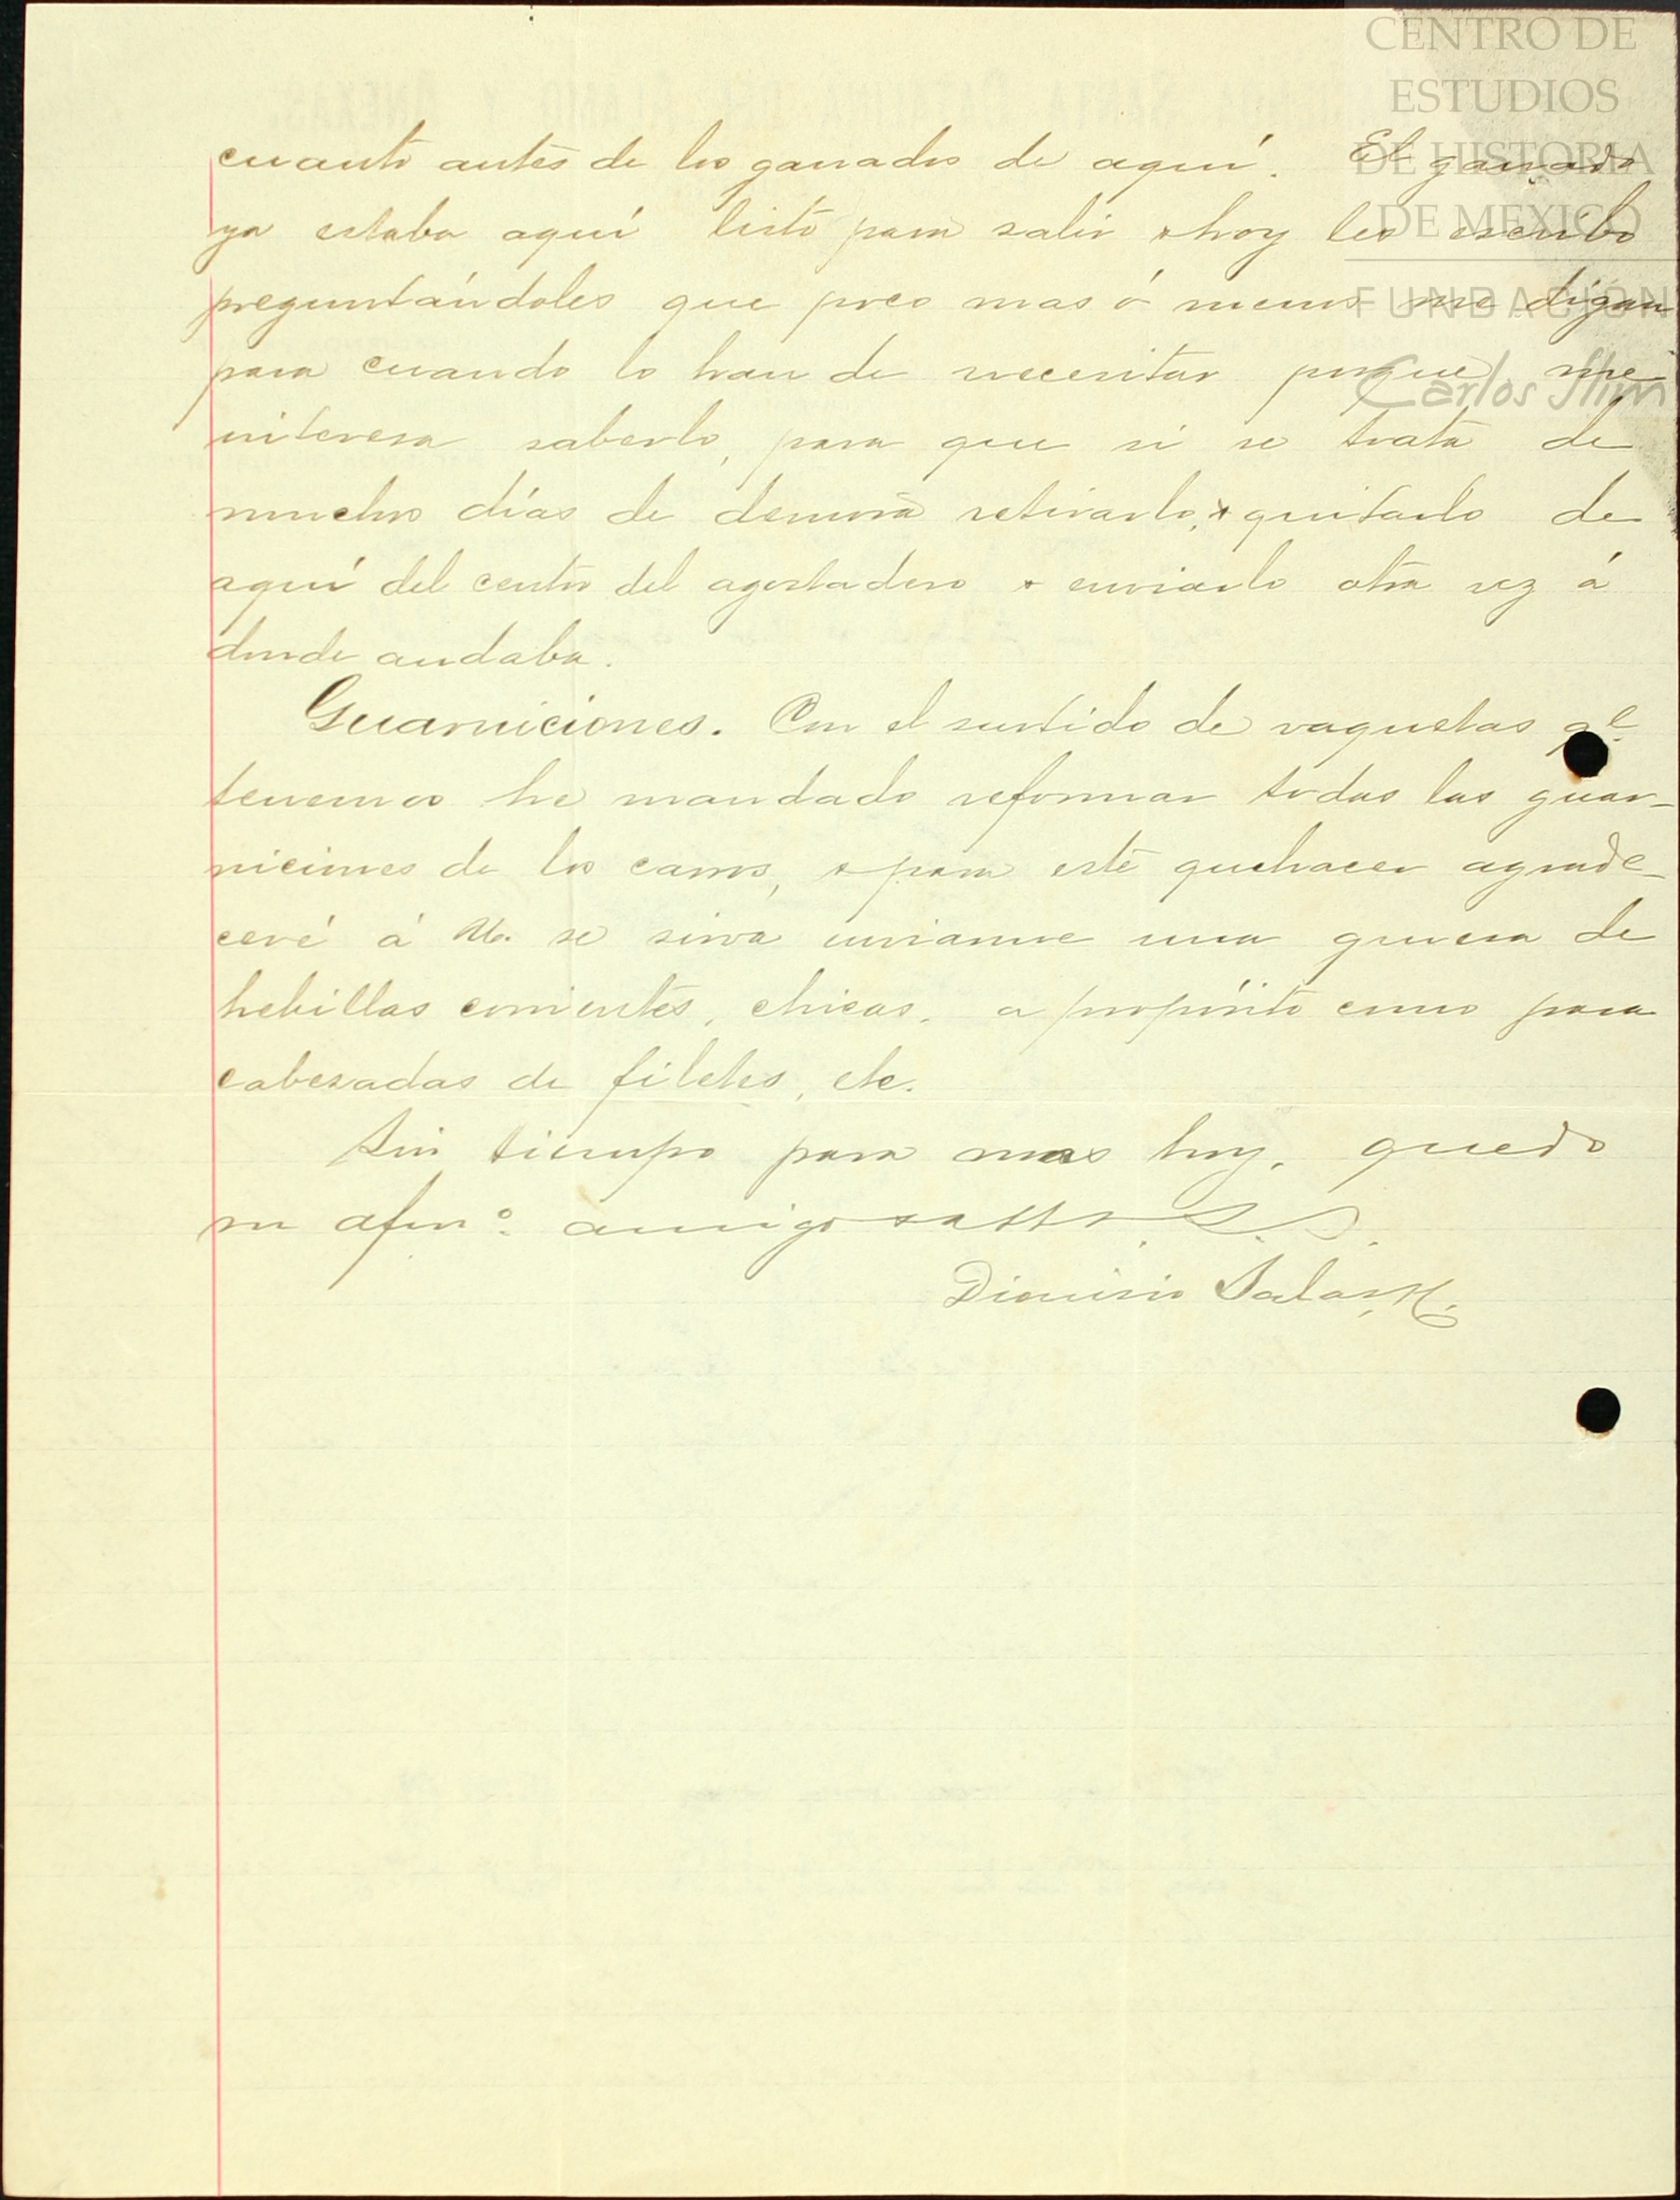 CENTRO DE
ESTUDIOS
DE HISTORIA
DE MEXICO
FUNDACIÓN
Carlos Slim
cuanto antes de los ganados de aquí. El ganado
ya estaba aquí listo para salir & hoy les escribo
preguntándoles que poco mas ó menos me digan
para cuando lo han de necesitar porque me
interesa saberlo, para que si se trata de
muchos días de demora retirarlo, & quitarlo de
aquí del centro del agostadero & enviarlo otra vez á
donde andaba.
Guarniciones. Con el surtido de vaquetas qe.
tenemos he mandado reformar todas las guar-
niciones de los carros, & para este quehacer agrade-
ceré á Ud. se sirva enviarme una gruesa de
hebillas corrientes, chicas, a propósito como para
cabezadas de filetes, etc.
Sin tiempo para mas hoy, quedo
su afmo. amigo & atto. S. S.
Dionisio Salas H.